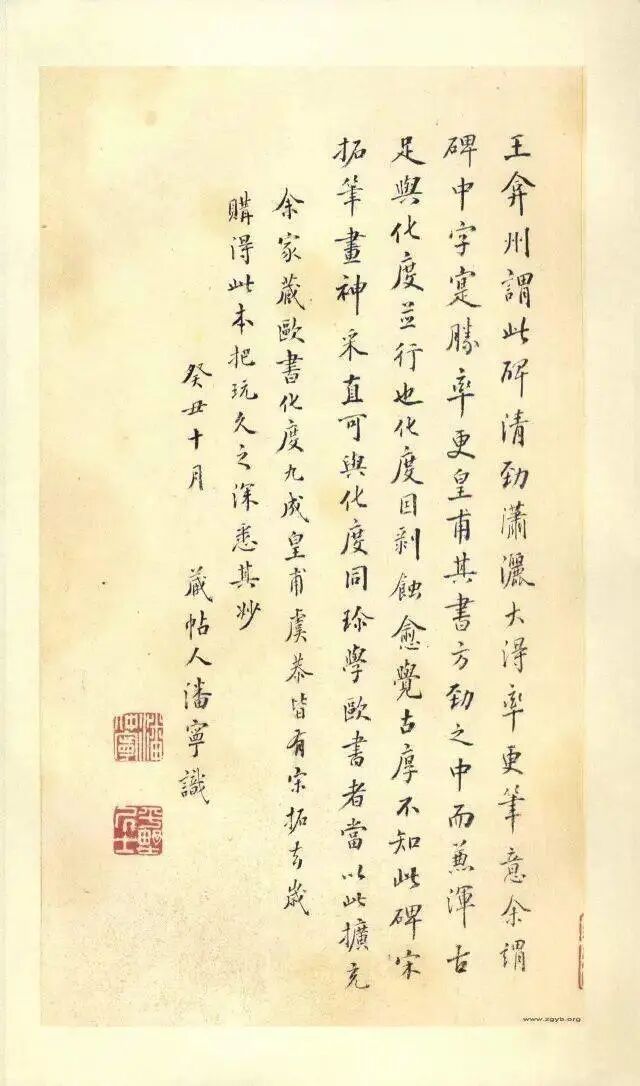 王弇州謂此碑清勁瀟灑大得率更筆意余謂
碑中字寔勝率更皇甫其書方勁之中而蒹渾古
足與化度並行也化度因剥蝕愈覺古厚不知此碑宋
拓筆畫神采直可與化度同珍學歐書者當以此擴充
余家藏歐書化度九成皇甫虞恭皆有宋拓去歲
購得此本把玩久之深悉其妙
癸丑十月 藏帖人潘寧識
潘寧
居士
www.zgyb.org